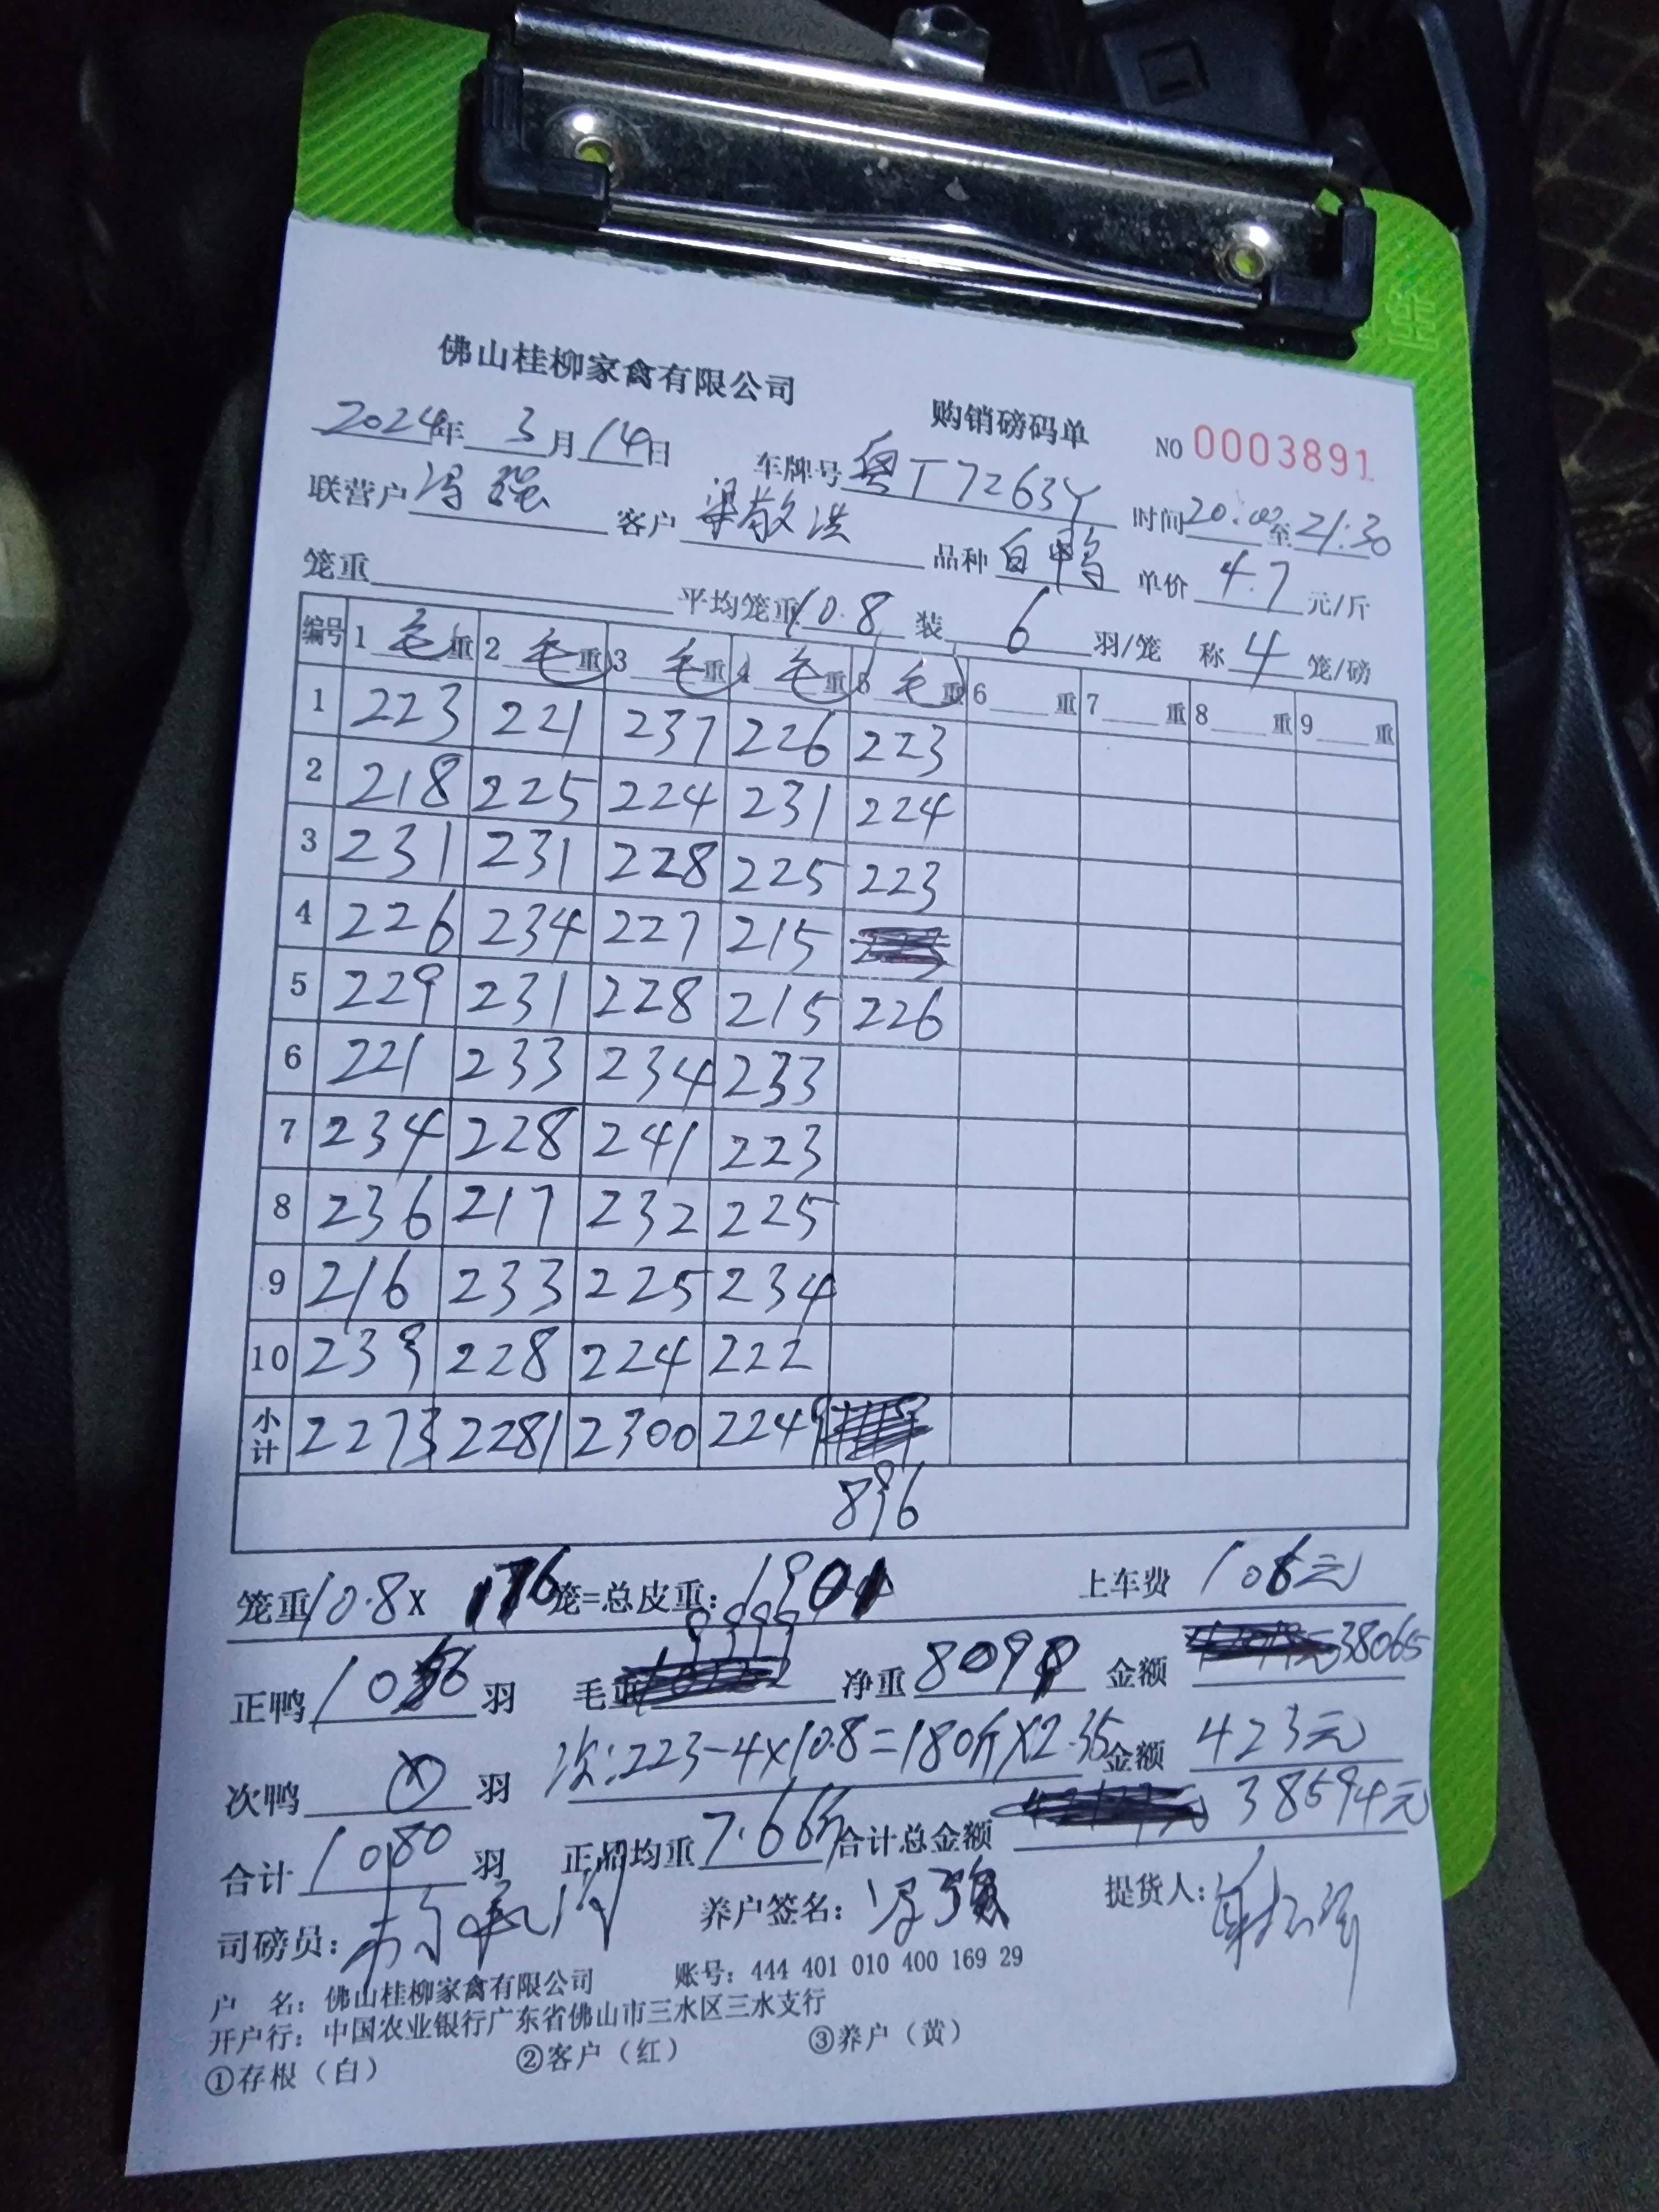 佛山桂柳家禽有限公司 购销磅码单 NO 0003891
2024年 3月 14日 车牌号 粤T7263Y 时间 20:02至21:30
联营户 冯强 客户 梁敬洪 品种 白鸭 单价 4.7 元/斤
笼重 平均笼重 10.8 装 6 羽/笼 称 4 笼/磅
编号 1 毛重 2 毛重 3 毛重 4 毛重 5 毛重 6 重 7 重 8 重 9 重
1 223 221 237 226 223
2 218 225 224 231 224
3 231 231 228 225 223
4 226 234 227 215
5 229 231 228 215 226
6 221 233 234 233
7 234 228 241 223
8 236 217 232 225
9 216 233 225 234
10 239 228 224 222
小计 2273 2281 2300 2249
896
笼重 10.8 x 176 笼=总皮重: 1901 上车费 106元
正鸭 1056 羽 毛重 9999 净重 8098 金额 38065
次鸭 羽 次:223-4x10.8=180斤x2.35 金额 423元
合计 1080 羽 正品均重 7.66斤 合计总金额 38594元
司磅员: 养户签名: 冯强 提货人:
户 名: 佛山桂柳家禽有限公司 账号: 444 401 010 400 169 29
开户行: 中国农业银行广东省佛山市三水区三水支行
①存根(白) ②客户(红) ③养户(黄)